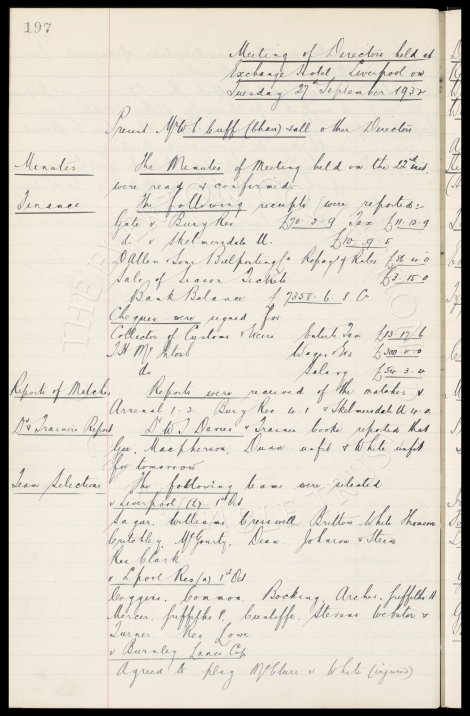 197
Meeting of Directors held at
Exchange Hotel, Liverpool on
Tuesday 27th September 1932
Present Mr W C Cuff (Chair) & all other Directors
Minutes
The Minutes of Meeting held on the 22nd inst.
were read & confirmed.
Finance
The following receipts were reported:-
Gate v Bury Res £70. 3. 9 Tax £11. 13. 9
do v Skelmersdale U. £10. 9. 5
D Allen & Sons Billposting Repayt of Rates £26. 0. 0
Sale of Season Tickets £3. 15. 0
Bank Balance £7358. 6. 8 Cr
Cheques were signed for
Collector of Customs & Excise Entertts Tax £13 17 6
T H McIntosh Wages &c £300. 0. 0
do Salary £34. 3. 4
Reports of Matches
Reports were received of the matches v
Arsenal 1. 2. Bury Res 4. 1 & Skelmersdale U 4. 0.
Dr & Trainers Report
Dr W J Davies & Trainer Cooke reported that
Gee, Macpherson, Dunn unfit & White unfit
for tomorrow
Team Selections
The following teams were selected
v Liverpool (h) 1st Oct
Sagar, Williams, Cresswell, Britton, White Thomson
Critchley, McGourty, Dean, Johnson & Stein
Res Clark
v Lpool Res (a) 1st Oct
Coggins, Common, Bocking, Archer, Griffiths H
Mercer, Griffiths P. Cunliffe, Stevens Webster &
Turner. Res Lowe
v Burnley Lancs Cup
Agreed to play McClure v White (injured)